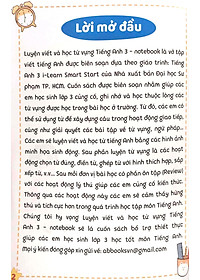 Lời mở đầu
Luyện viết và học từ vựng Tiếng Anh 3 - notebook là vở tập
viết tiếng Anh được biên soạn dựa theo giáo trình: Tiếng
Anh 3 i-Learn Smart Start của Nhà xuất bản Đại học Sư
phạm TP. HCM. Cuốn sách được biên soạn nhằm giúp các
em học sinh lớp 3 củng cố, ghi nhớ và học thuộc lòng các
từ vựng được học trong bài học ở trường. Từ đó, các em có
thể sử dụng từ để xây dựng câu trong hoạt động giao tiếp,
cũng như giải quyết các bài tập về từ vựng, ngữ pháp...
Các em sẽ luyện viết và học từ tiếng Anh bằng các hình ảnh
minh họa sinh động. Sau phần luyện từ vựng là các hoạt
động chọn từ đúng, điền từ, ghép từ với hình thích hợp, sắp
xếp từ, v.v... Sau mỗi đơn vị bài học có phần ôn tập (Review)
với các hoạt động lý thú giúp các em củng cố kiến thức.
Thông qua các hoạt động này các em sẽ cảm thấy hứng
thú và tích cực hơn trong quá trình học tập môn Tiếng Anh.
Chúng tôi hy vọng Luyện viết và học từ vựng Tiếng
Anh 3 - notebook sẽ là cuốn sách bổ trợ thiết thực
giúp các em học sinh lớp 3 học tốt môn Tiếng Anh.
Mọi ý kiến đóng góp xin gửi về: abbooksvn@gmail.com
2